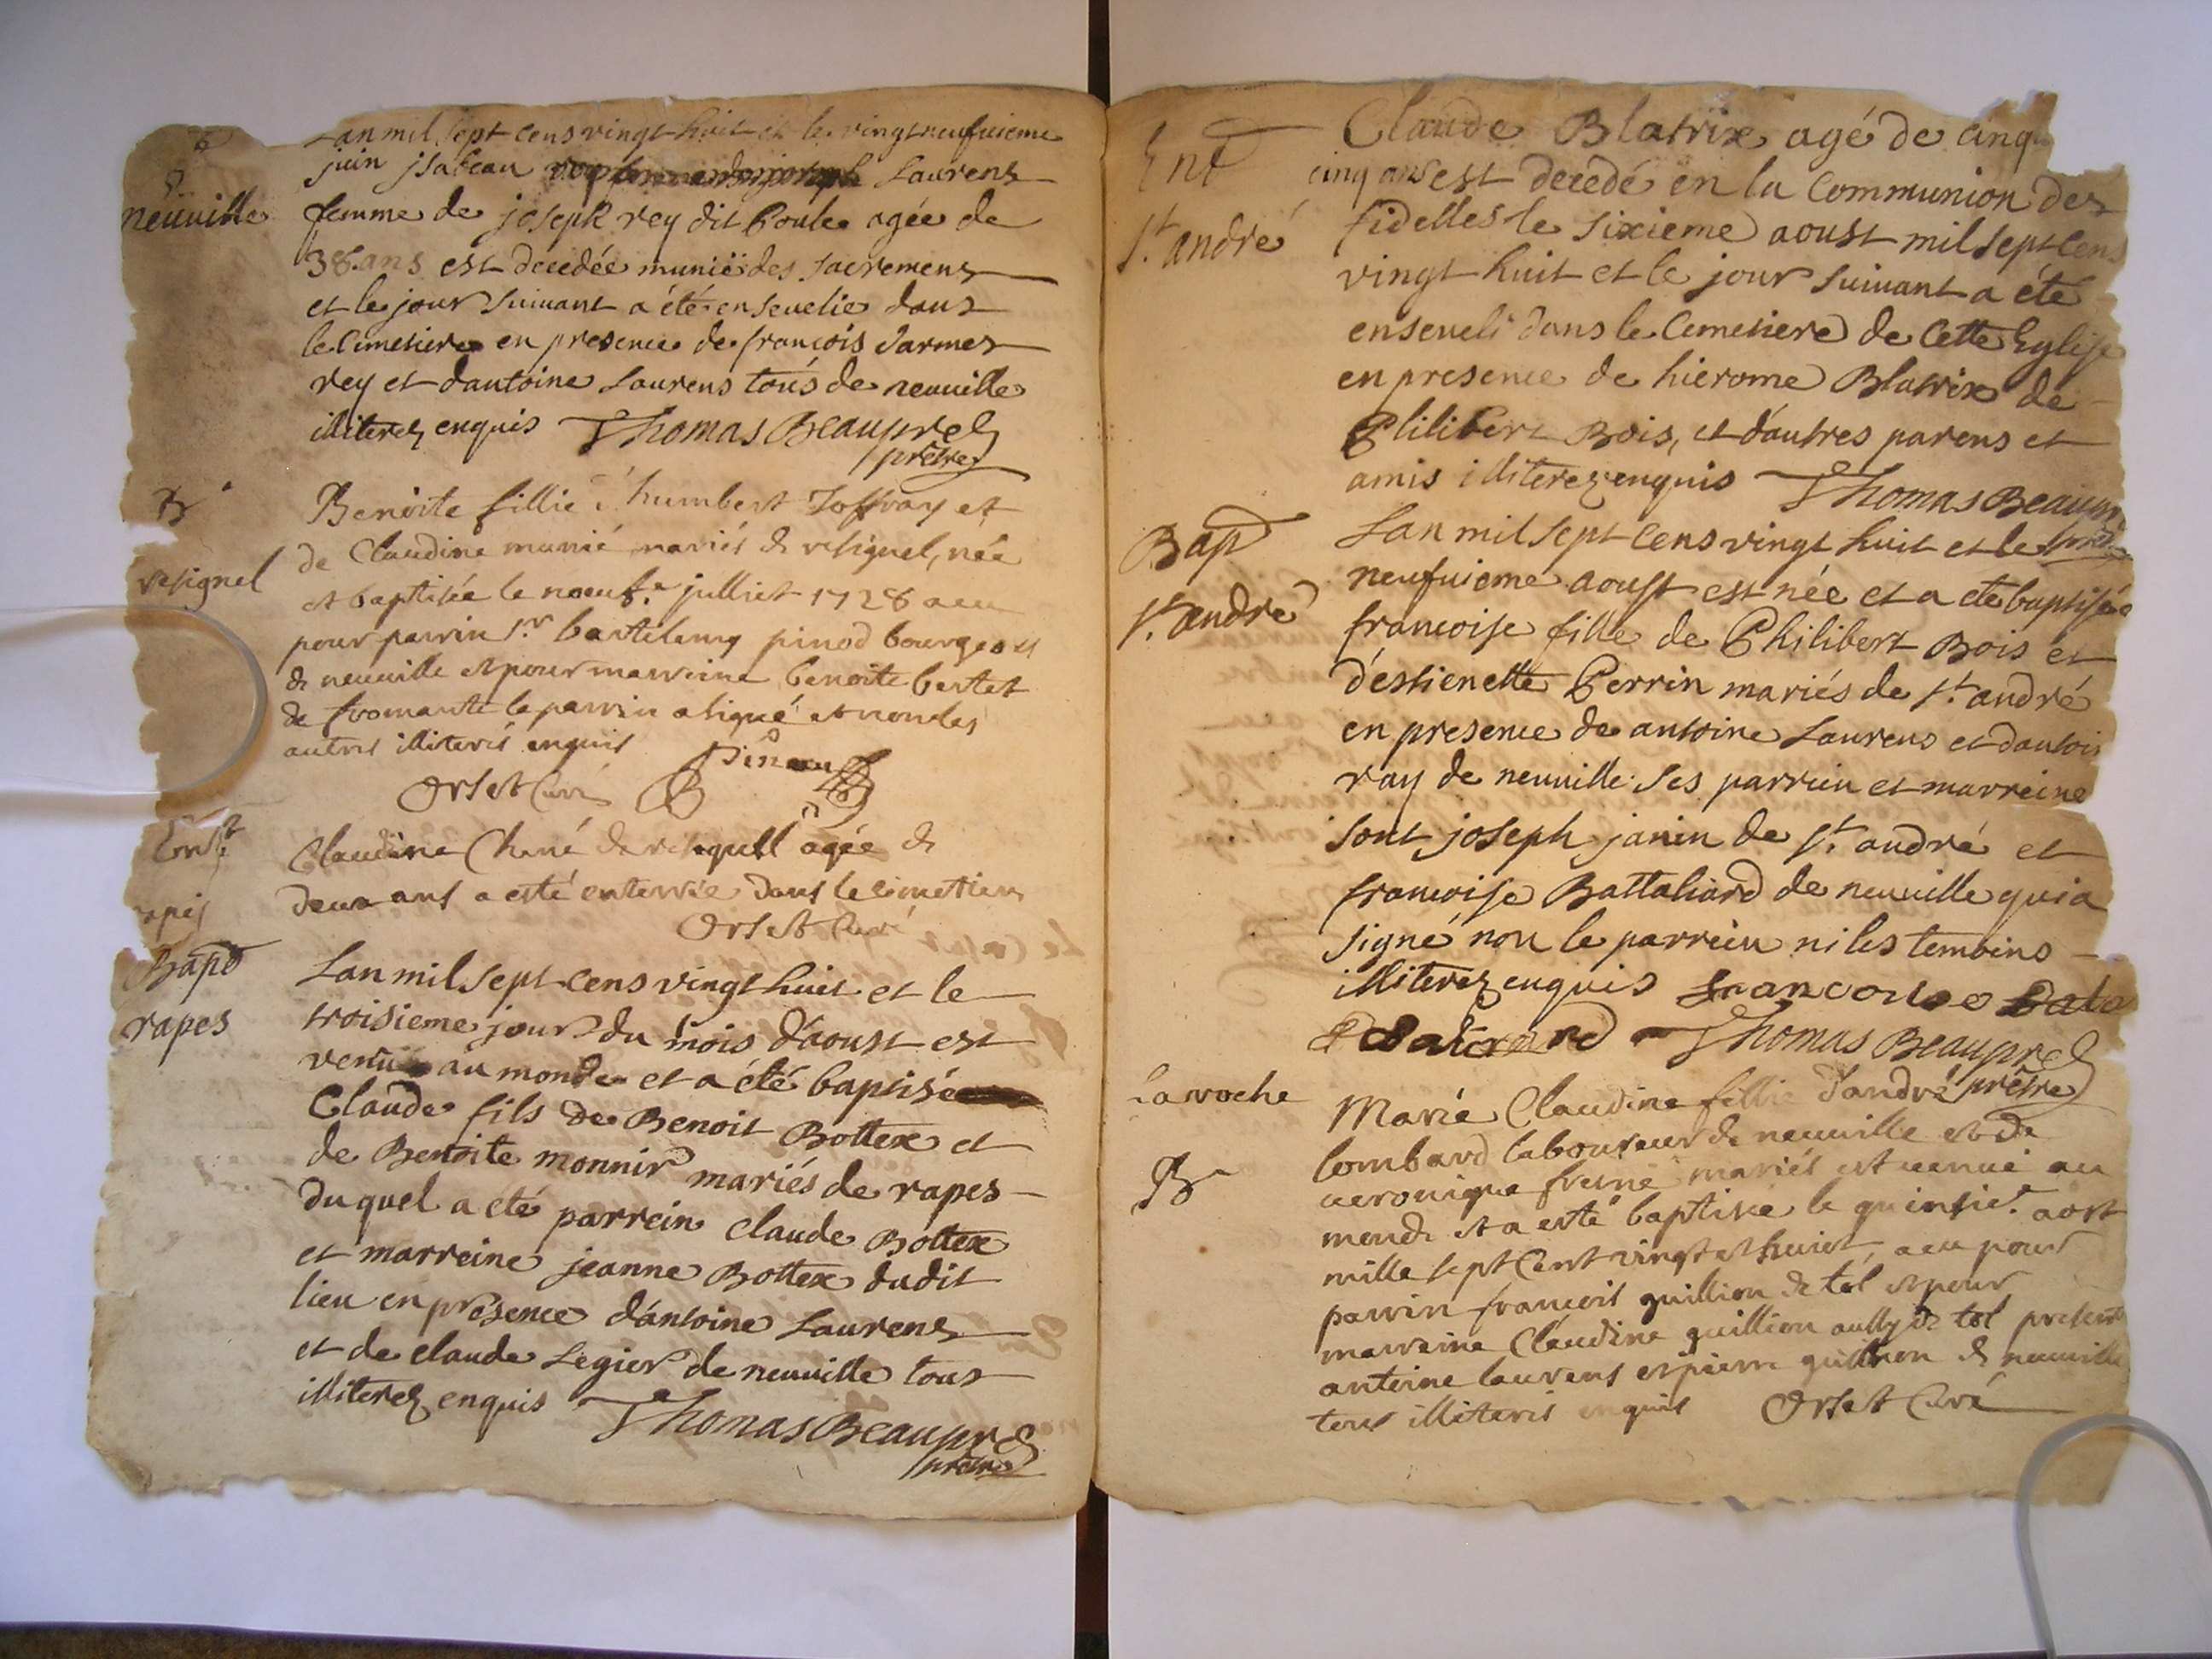 Lan mil sept cens vingt huit et le vingt neufuieme
juin jsabeau Laurens
neuuille
femme de joseph rey dit boule agée de
38 ans est decedée munië des sacremens
et le jour suiuant a été enseuelie dans
le Cimetiere en presence de francois Darmes
rey et dantoine Laurens tous de neuuille
illiterez enquis Thomas Beaupre
prêtre
B
Benoite fillie d'humbert Joffray et
de Claudine munié mariés de resignel, née
resignel
et baptisée le neuf.e julliet 1728 a eu
pour parrin Sr bartelemy pinod bourgeois
de neuuille et pour marrine benoite bertet
de fromante le parrin a signé et non les
autres illiteris enquis Pinod
Orset Curé
Ent
Claudine Chené agée de
deux ans a esté enterrée dans le cimetiere
Orset Curé
Bapt
rapes
Lan mil sept cens vingt huit et le
troisieme jour du mois d'aoust est
venu au monde et a été baptisé
Claude fils de Benoit Bottex et
de Benoite monnir mariés de rapes
duquel a eté parrein Claude Bottex
et marreine jeanne Bottex dudit
lieu en presence d'antoine Laurens
et de claude Legier de neuuille tous
illiterez enquis Thomas Beaupre
prêtre
Ent
St. andré
Claude Blatrix agé de cinqu
cinq ans est decedé en la Communion des
fidelles le sixieme aoust mil sept cens
vingt huit et le jour suiuant a été
enseueli dans le Cimetiere de Cette Eglise
en presence de hierome Blatrix de
Philibert Bois, et d'autres parens et
amis illiterez enquis Thomas Beaupr
Bap
St. andré
Lan mil sept cens vingt huit et le
neufuieme aoust est née et a eté baptisée
francoise fille de Philibert Bois et
d'estienette Perrin mariés de St. andré
en presence de antoine Laurens et dantoi
ray de neuuille. Ses parrein et marreine
sont joseph janin de St. andré et
francoise Battaliard de neuuille qui a
signé non le parrein ni les temoins
illiterez enquis francoise Bata
Thomas Beaupre
prêtre
La roche
B
Marie Claudine fillie d'andré
lombard laboureur de neuuille et de
ueronique fresne mariés est uenue au
monde et a esté baptisée le quinsie.e aost
mille sept Cent vingt et huict, a eu pour
parrin francois guillion de tol et pour
marreine Claudine guillion aussy de tol present
antoine laurens et pierre guillion de neuuille
tous illiteris enquis Orset Curé